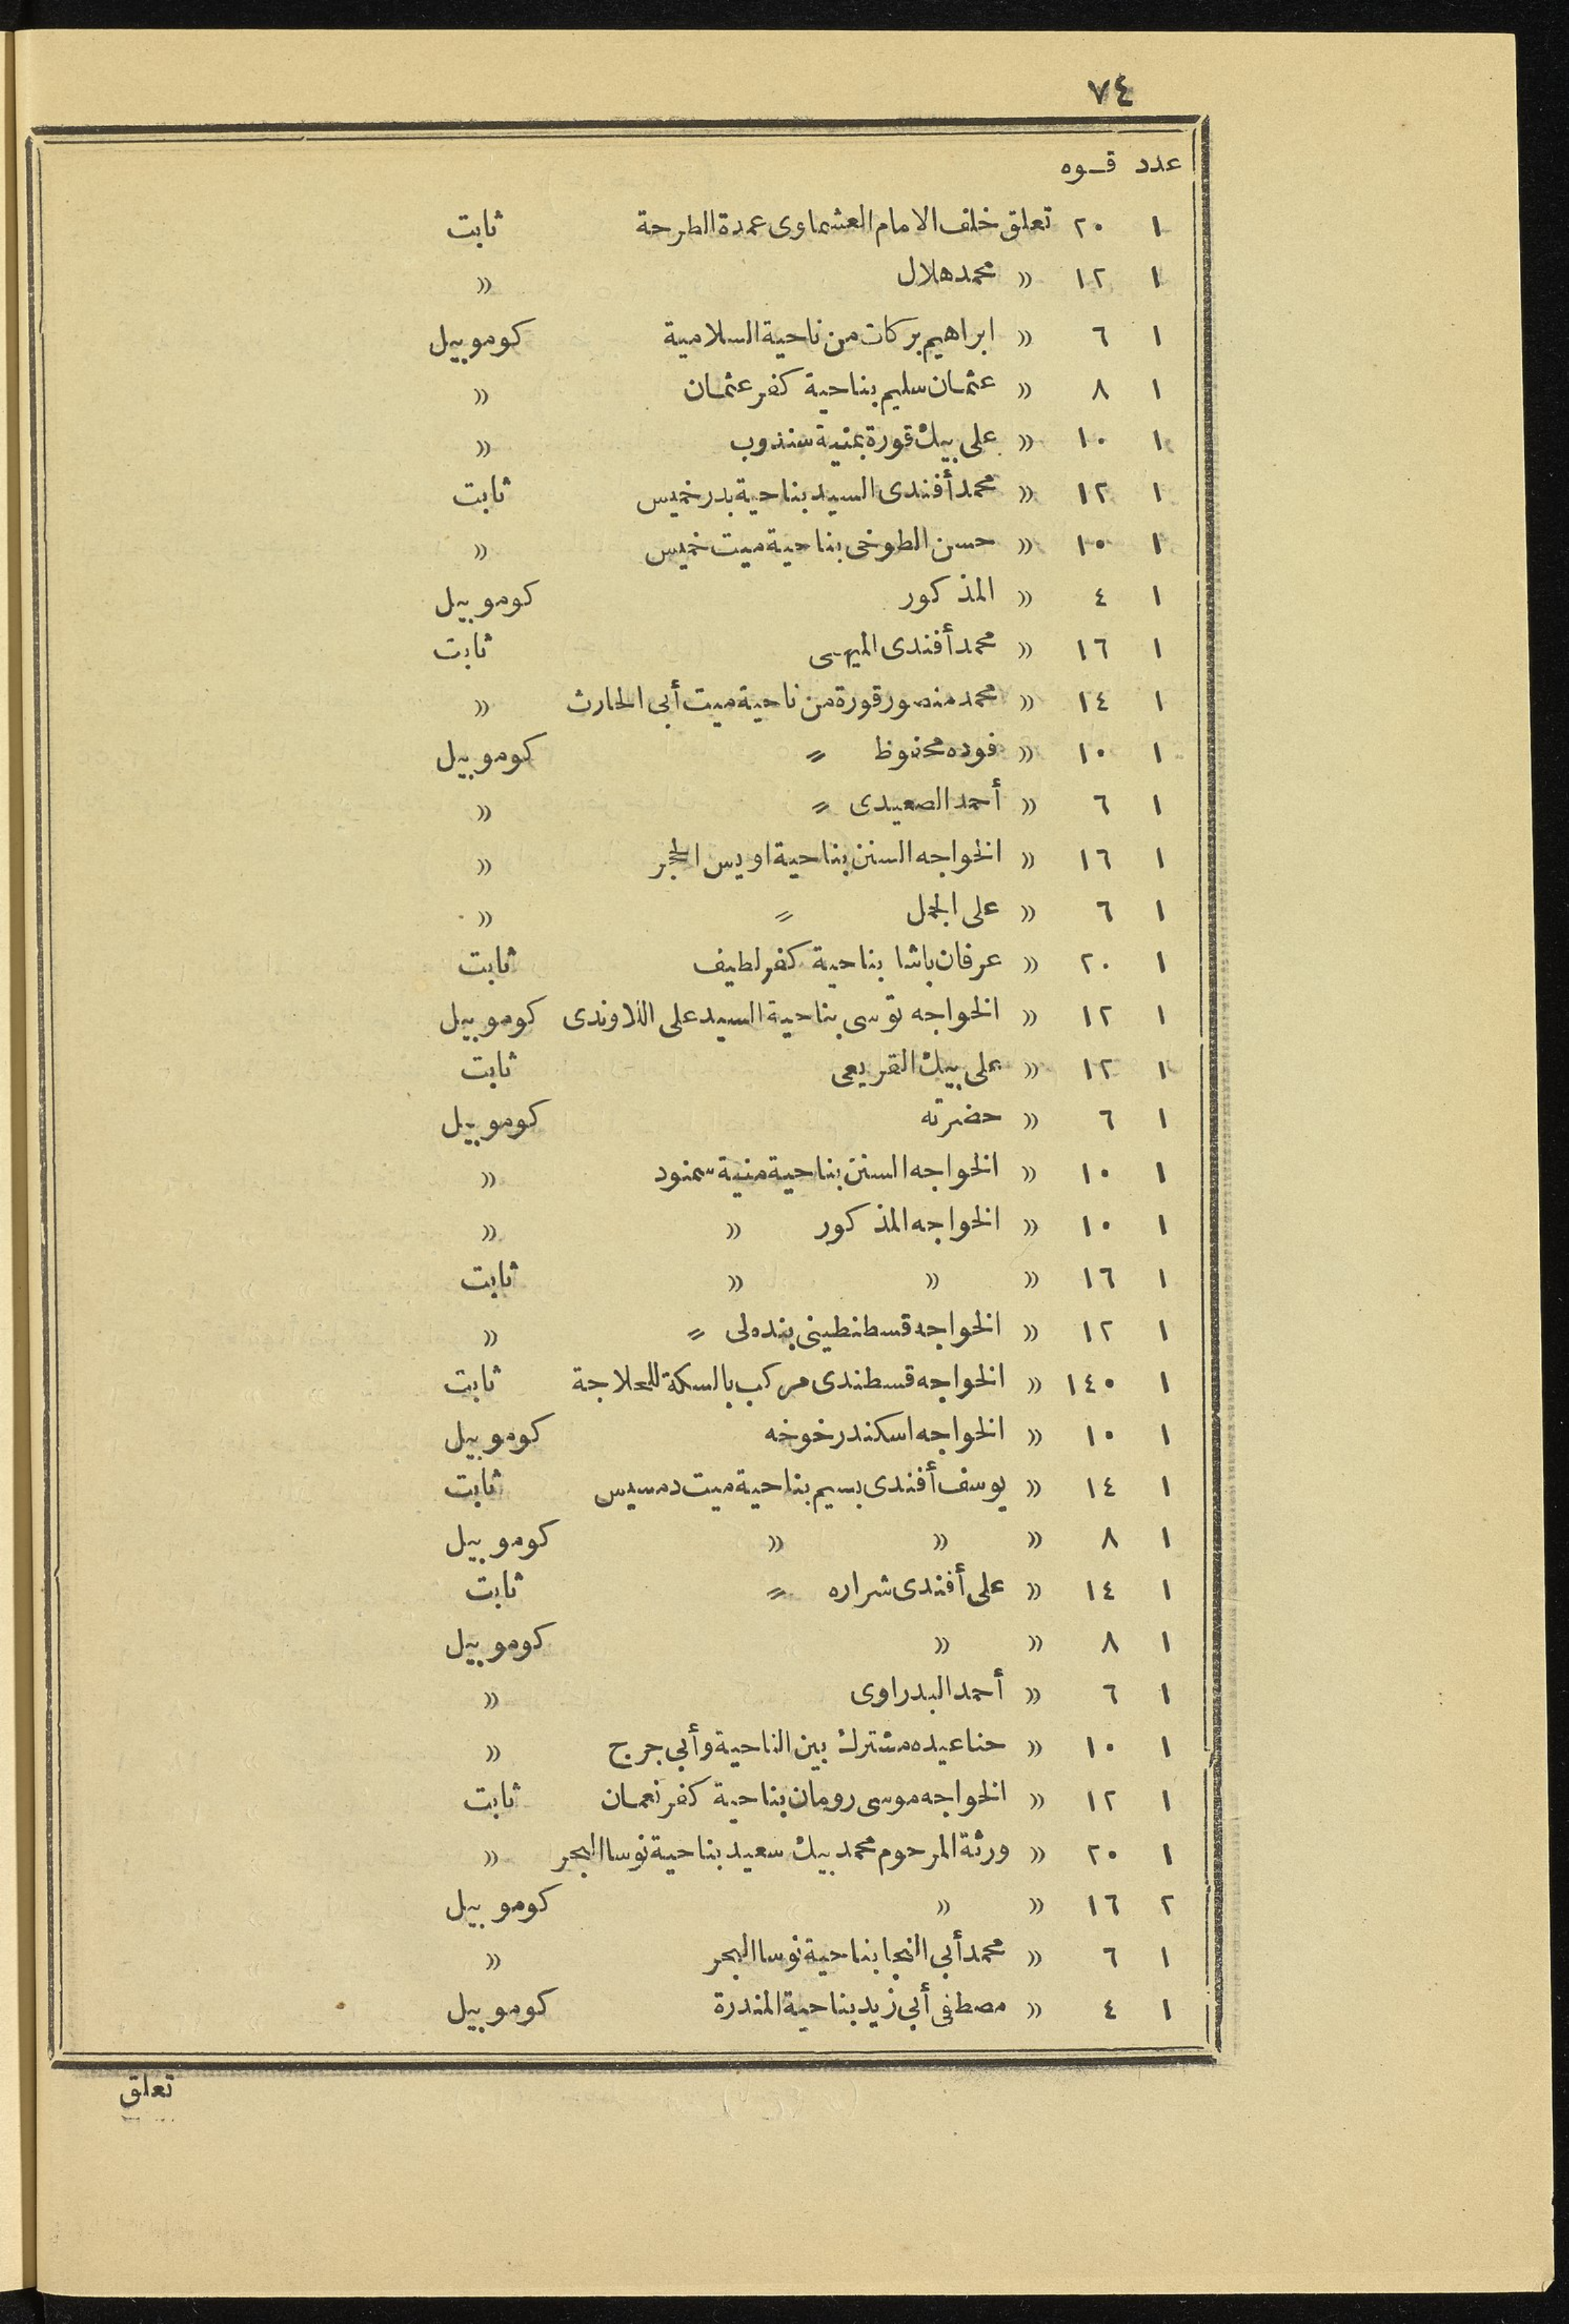 ٧٤
عدد قـوه
١ ٢٠ تعلق خلف الامام العشماوى عمدة الطرحة ثابت
١ ١٢ » محمد هلال »
١ ٦ » ابراهيم بركات من ناحية السلامية كوموبيل
١ ٨ » عثمان سليم بناحية كفر عثمان »
١ ١٠ » على بيك قورة بمنية سندوب »
١ ١٢ » محمد أفندى السيد بناحية بدر خميس ثابت
١ ١٠ » حسن الطوخى بناحية ميت خميس »
١ ٤ » المذكور كوموبيل
١ ١٦ » محمد أفندى الميهى ثابت
١ ١٤ » محمد منصور قورة من ناحية ميت أبى الحارث »
١ ١٠ » فوده محفوظ » كوموبيل
١ ٦ » أحمد الصعيدى » »
١ ١٦ » الخواجه السنن بناحية اويس الحجر »
١ ٦ » على الجمل » »
١ ٢٠ » عرفان باشا بناحية كفر لطيف ثابت
١ ١٢ » الخواجه توسى بناحية السيد على اللاوندى كوموبيل
١ ١٢ » على بيك القريعى ثابت
١ ٦ » حضرته كوموبيل
١ ١٠ » الخواجه السنن بناحية منية سمنود »
١ ١٠ » الخواجه المذكور » »
١ ١٦ » » » ثابت
١ ١٢ » الخواجه قسطنطينى بنده لى » »
١ ١٤٠ » الخواجه قسطندى مركب بالسكة للحلاجة ثابت
١ ١٠ » الخواجه اسكندر خوخه كوموبيل
١ ١٤ » يوسف أفندى بسيم بناحية ميت دمسيس ثابت
١ ٨ » » » كوموبيل
١ ١٤ » على أفندى شراره » ثابت
١ ٨ » » كوموبيل
١ ٦ » أحمد البدراوى »
١ ١٠ » حنا عيده مشترك بين الناحية وأبى جرج »
١ ١٢ » الخواجه موسى رومان بناحية كفر نعمان ثابت
١ ٢٠ » ورثة المرحوم محمد بيك سعيد بناحية نوسا البحر »
٢ ١٦ » » كوموبيل
١ ٦ » محمد أبى النجا بناحية نوسا البحر »
١ ٤ » مصطفى أبى زيد بناحية المندرة كوموبيل
تعلق